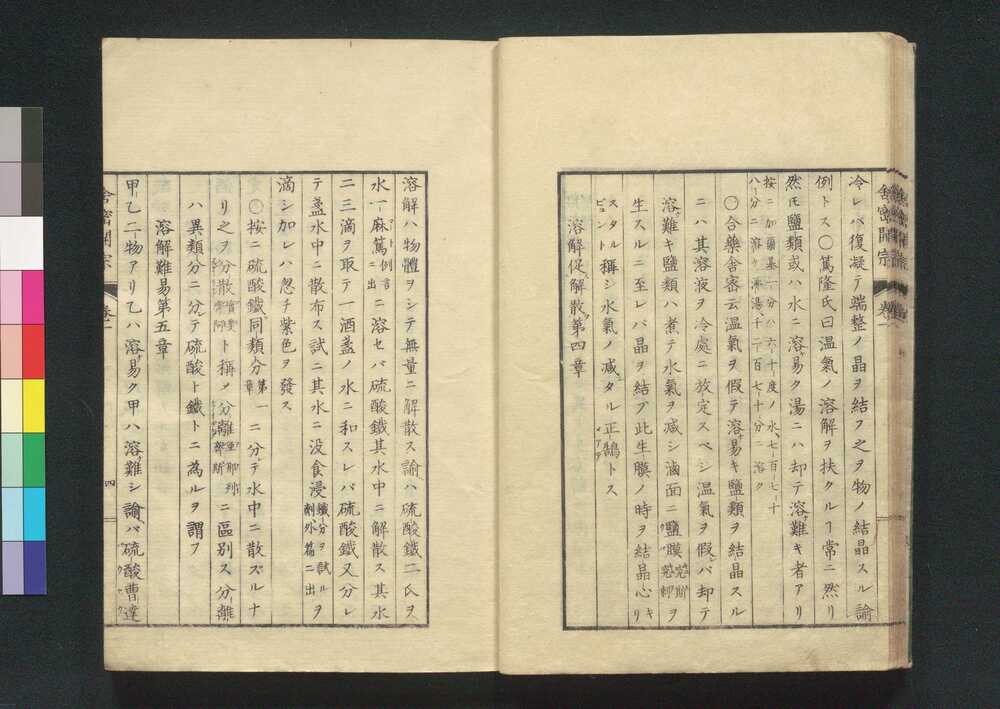 冷レバ復凝テ端整ノ晶ヲ結フ之ヲ物ノ結晶スル諭
例トス〇篤隆氏曰温氣ノ溶解ヲ扶クルー常ニ然リ
然𪜈鹽類或ハ水ニ溶易ク湯ニハ却テ溶難キ者アリ
按ニ加爾基一分ハ六十度ノ水七百七十
八分ニ溶ケ沸湯千二百七十分ニ溶ク
〇合藥舎密云温氣ヲ假テ溶易キ鹽類ヲ結晶スル
ニハ其溶液ヲ冷處ニ放定スベシ温氣ヲ假バ却テ
溶難キ鹽類ハ煮テ水氣ヲ减シ滷面ニ鹽膜ヲ
生スルニ至レバ晶ヲ結ブ此生膜ノ時ヲ結晶心キリ
スタルピュント稱シ水氣ノ减タル正鵠トス
溶解促解散第四章
溶解ハ物體ヲシテ無量ニ解散ス諭ハ硫酸鐵二氏ヲ
水一麻篤ニ溶セバ硫酸鐵其水中ニ解散ス其水
二三滴ヲ取テ一酒盞ノ水ニ和スレバ硫酸鐵又分レ
テ盞水中ニ散布ス試ニ其水ニ没食浸鐵分ヲ試ルヲ
劑外篇ニ出
滴シ加レハ忽チ紫色ヲ發ス
〇按ニ硫酸鐵同類分第一章ニ分テ水中ニ散ズルナ
リ之ヲ分散ト稱メ分離ニ區別ス分離
ハ異類分ニ分テ硫酸ト鐵トニ為ルヲ謂フ
溶解難易第五章
甲乙二物アリ乙ハ溶易ク甲ハ溶難シ諭バ硫酸曹達
舎密開宗 卷一 四